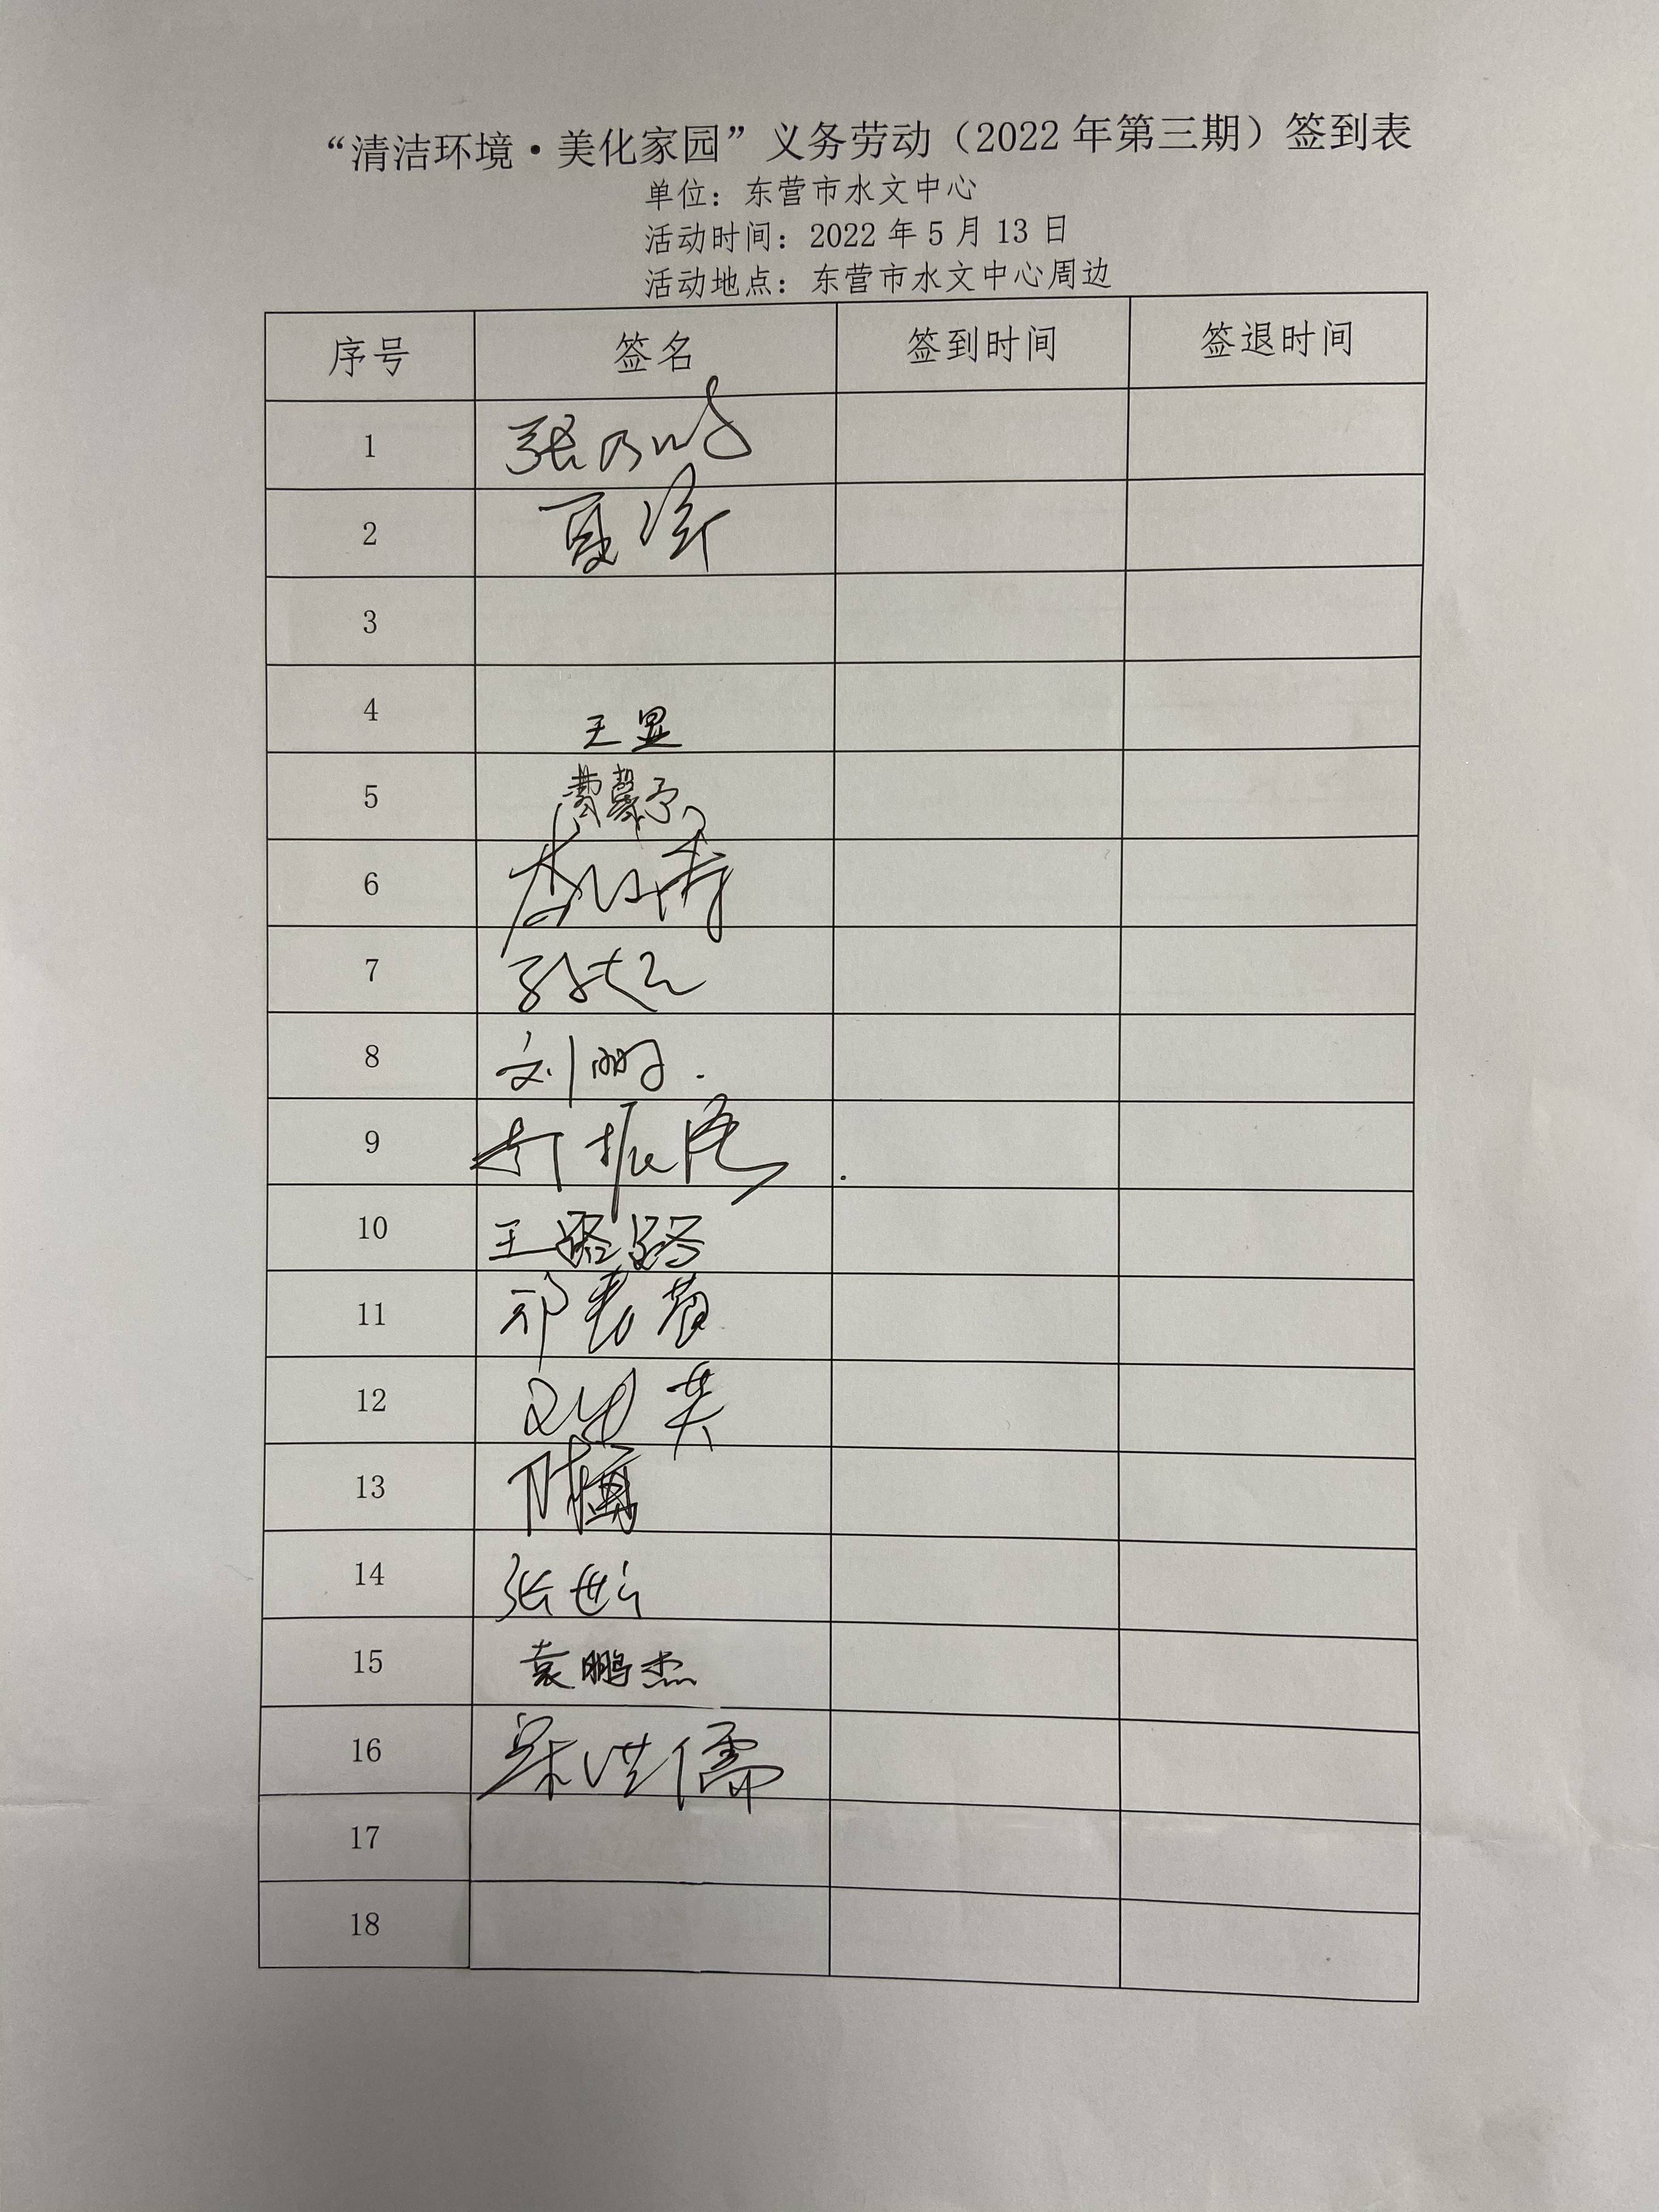 “清洁环境·美化家园”义务劳动（2022 年第三期）签到表
单位：东营市水文中心
活动时间：2022 年 5 月 13 日
活动地点：东营市水文中心周边
序号 签名 签到时间 签退时间
1 张乃
2 夏
3
4 王显
5 费馨予
6
7 孙
8 刘鹏
9 振
10 王璐璐
11 邓
12 英
13
14 张世
15 袁鹏杰
16 梁洪儒
17
18